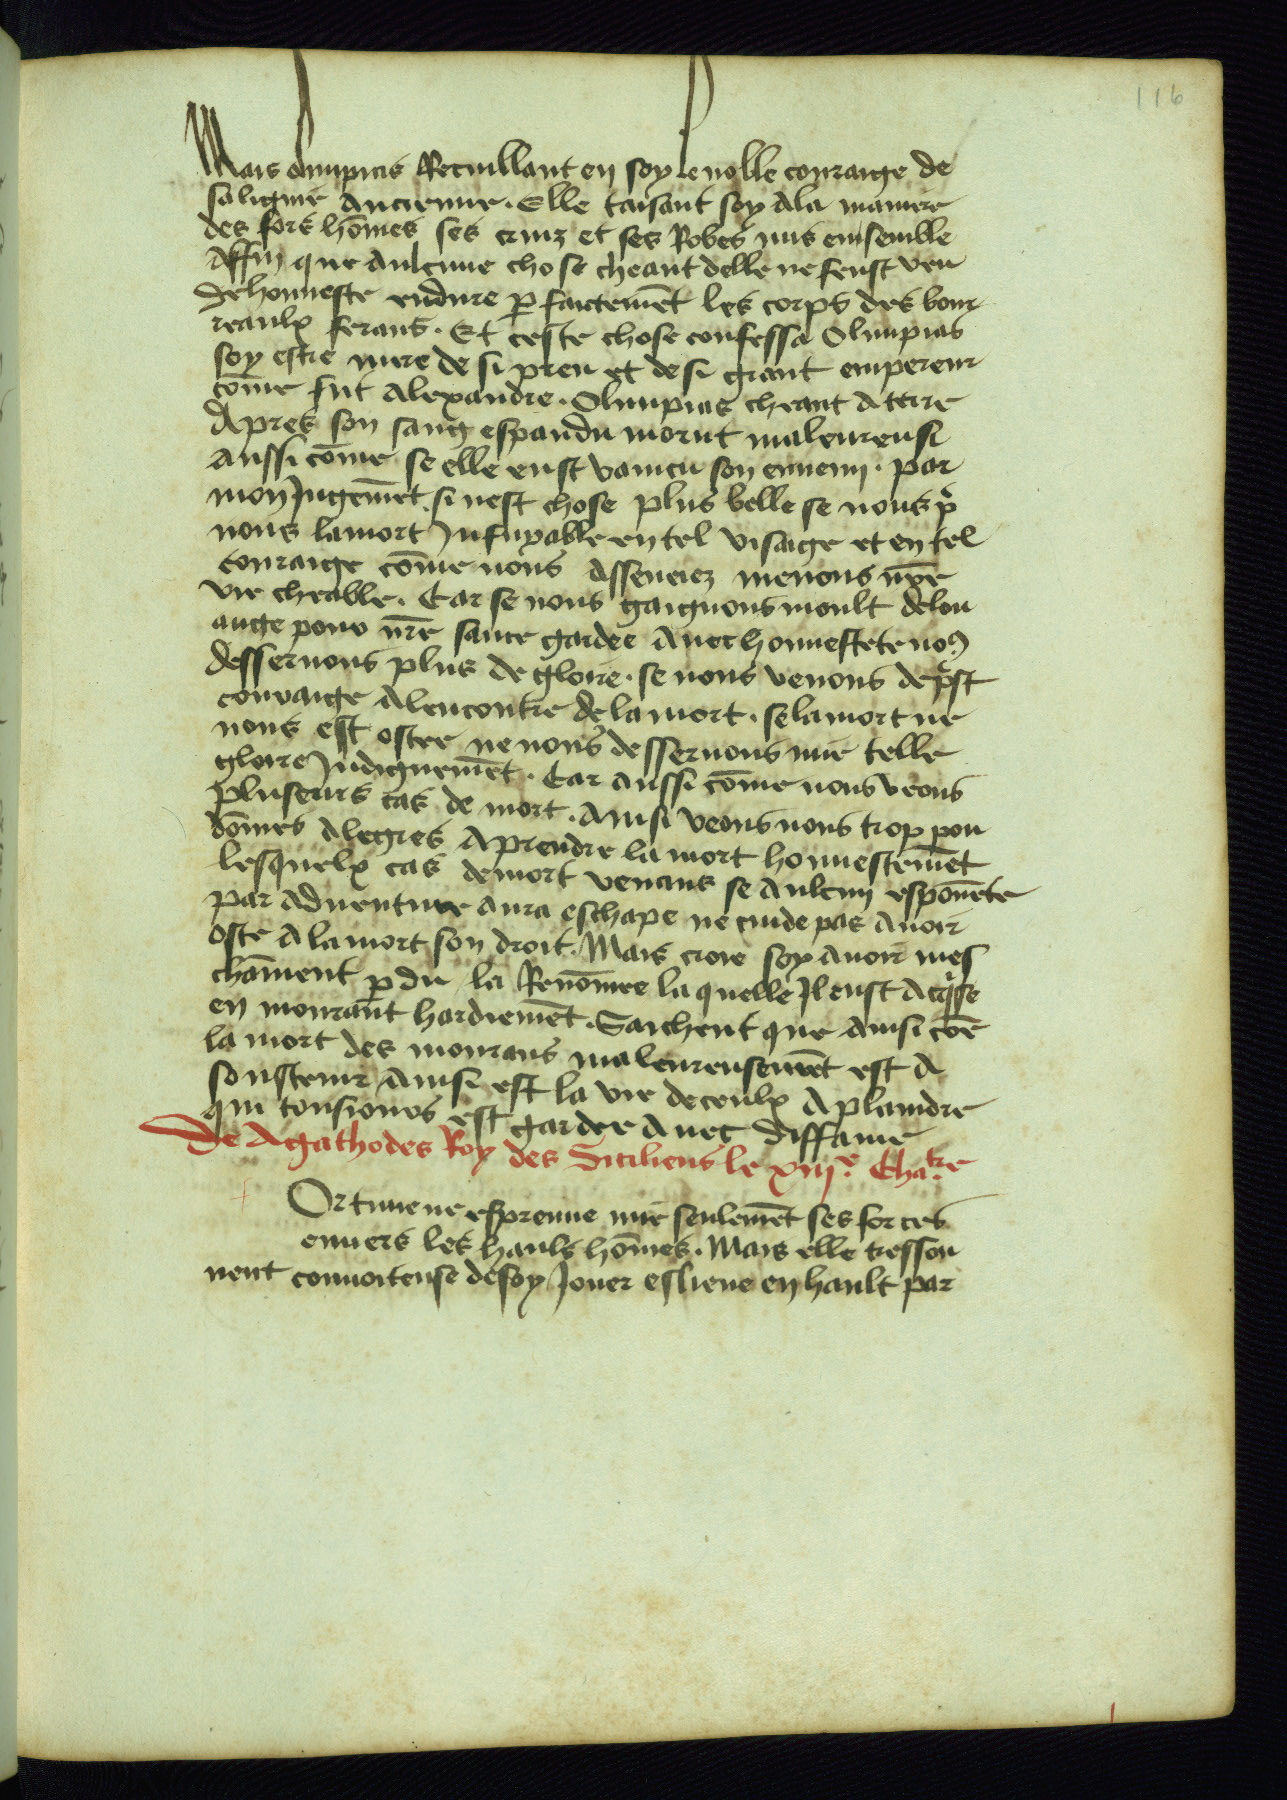 116
Mais olimpias Recuillant en soy le noble couraige de
sa lignie ancienne. Elle taisant soy ala maniere
des fors hōmes ses crinz et ses Robes mis ensemble
Affin que aulcune chose cheant delle ne feust veu
dehonneste endure ꝑfaictemēt les corps des bour
reaulx ferans. Et ceste chose confessa Olimpias
soy estre mere de si preu et de si grant empereur
cōme fut Alexandre. Olimpias cheant a terre
Apres son sang espandu morut maleureusi
aussi cōme se elle eust vaincu son ennemi. par
mon Jugemēt. si nest chose plus belle se nous pͬ
nous la mort Infuyable en tel visaige et en tel
couraige cōme nous assenciez menons nr̄e
vie cheable. Car se nous gaignons moult de lou
ange pour nr̄e sante gardee avec honnestete noꝯ
desservons plus de gloire. se nous venons de pͬst
couraige alencontre de la mort. se la mort ne
nous est ostee ne nous desservons mie telle
gloire Indignemēt. Car aussi cōme nous veons
pluseurs cas de mort. Ainsi veons nous trop pou
dōmes alegres a prendre la mort honnestemēt
lesquelx cas de mort venans se aulcun espouēte
par adventure aura eschape ne cuide pas avoir
oste a la mort son droit. Mais croie soy avoir mes
chāment ꝑdu la Renōmee la quelle Il eust acqͥse
en mourant hardiemēt. Saichent que ainsi cōe
la mort des mourans maleureusemēt est a
soustenir Ainsi est la vie de ceulx a plaindre
qui tousiours est gardee avec diffame
De Agathodes Roy des Siciliens le xiiij.e Chapt.re
Ortune ne espreuue mie seulemēt ses forces
envers les haulx hōmes. Mais elle tressou
vent convoiteuse de soy Jouer eslieve en hault par